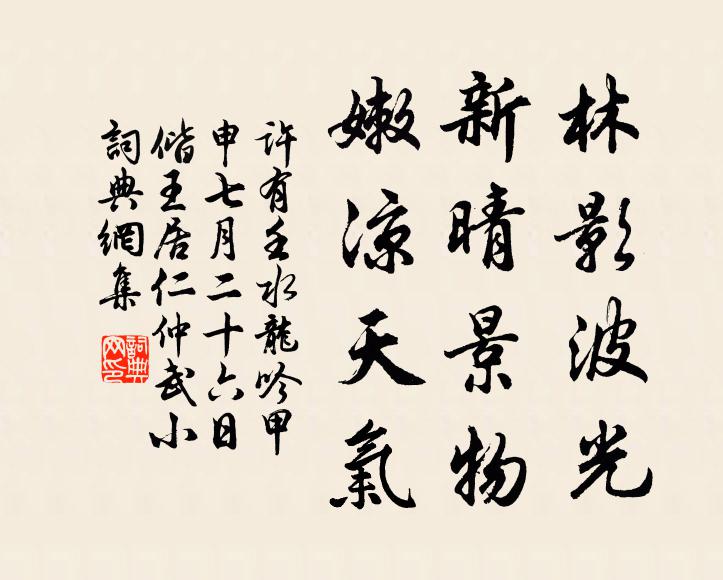 林影波光
新晴景物
嫩凉天氣
許有壬水龍吟甲
申七月二十六日
偕王居仁仲武小
詞典網集
詞典
网印